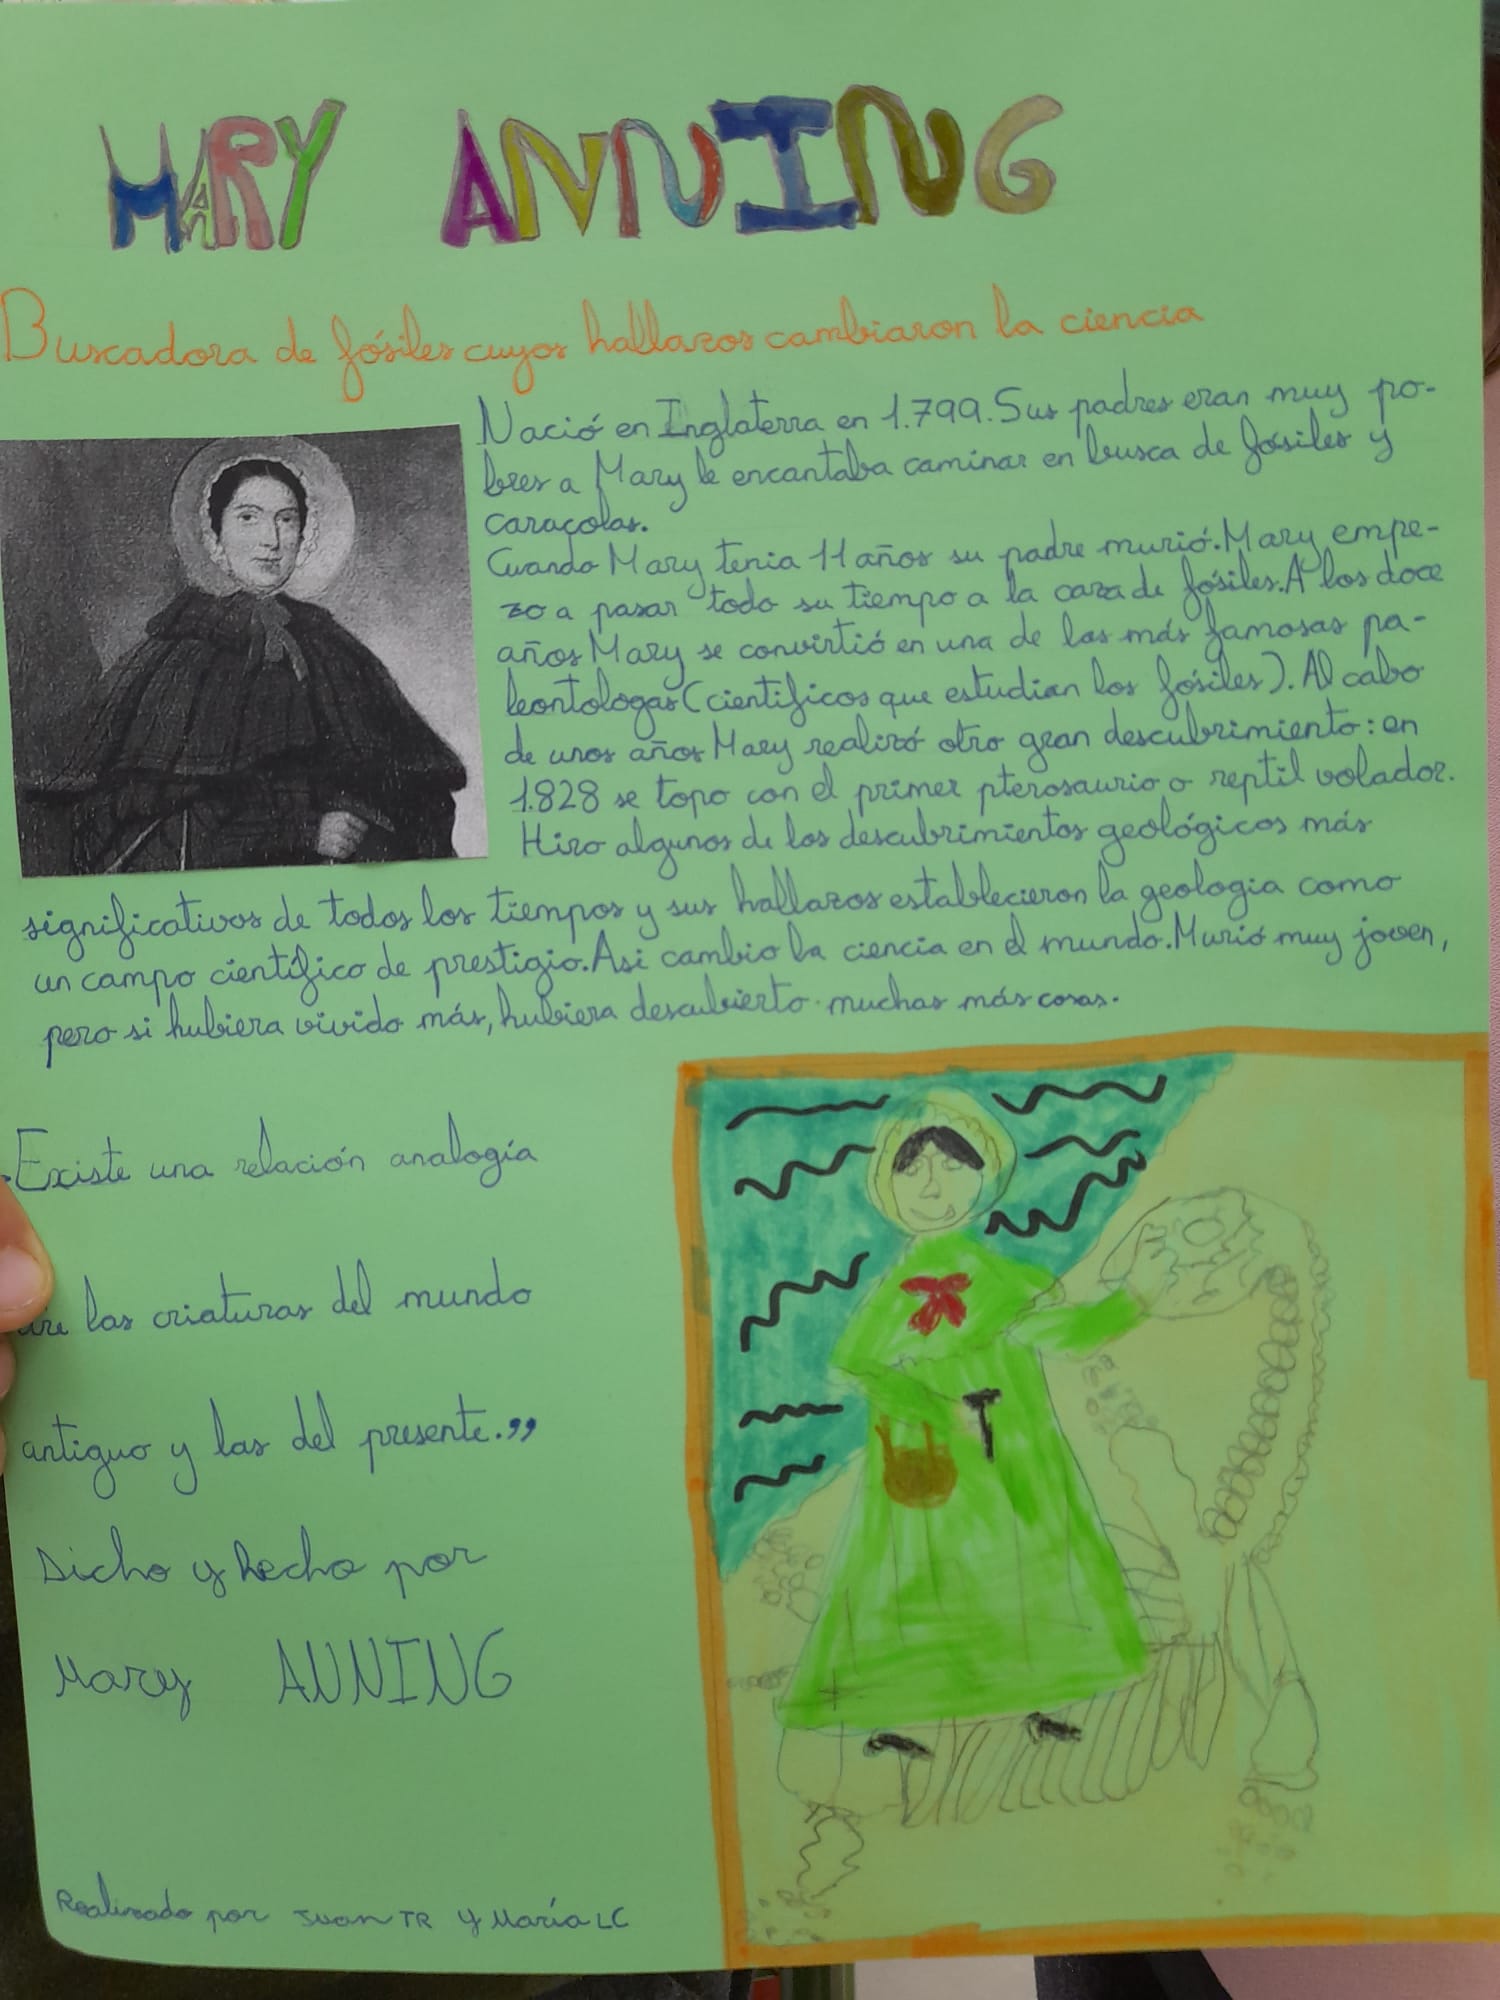 MARY ANNING
Buscadora de fósiles cuyos hallazos cambiaron la ciencia
Nació en Inglaterra en 1.799. Sus padres eran muy po-
bres a Mary le encantaba caminar en busca de fósiles y
caracolas.
Cuando Mary tenia 11 años su padre murió. Mary empe-
zo a pasar todo su tiempo a la caza de fósiles. A los doce
años Mary se convirtió en una de las más famosas pa-
leontologas (cientificos que estudian los fósiles). Al cabo
de unos años Mary realizó otro gran descubrimiento: en
1.828 se topo con el primer pterosaurio o reptil volador.
Hizo algunos de los descubrimientos geológicos más
significativos de todos los tiempos y sus hallazos establecieron la geologia como
un campo científico de prestigio. Asi cambio la ciencia en el mundo. Murió muy joven,
pero si hubiera vivido más, hubiera descubierto muchas más cosas.
Existe una relación analogía
las criaturas del mundo
antiguo y las del presente.”
Dicho y hecho por
Mary ANNING
Realizado por Juan TR y María LC